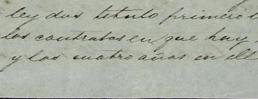 ley dos titulo primero
los contratos en que hay
y los cuatro años en el